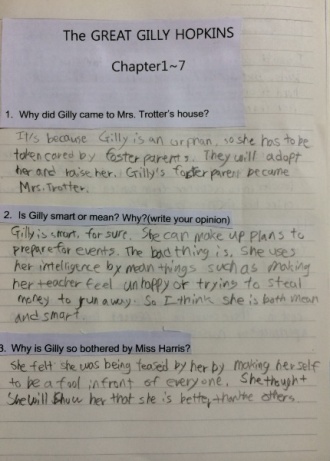 The GREAT GILLY HOPKINS
Chapter1~7
1. Why did Gilly came to Mrs. Trotter's house?
It's because Gilly is an orpnan, so she has to be
taken cared by foster parents. They will adopt
her and raise her. Gilly's foster parent became
Mrs. Trotter.
2. Is Gilly smart or mean? Why?(write your opinion)
Gilly is smart, for sure. She can make up plans to
prepare for events. The bad thing is, she uses
her intelligence by mean things such as making
her teacher feel unhappy or trying to steal
money to run away. So I think she is both mean
and smart.
3. Why is Gilly so bothered by Miss Harris?
She felt she was being teased by her by making herself
to be a fool infront of everyone. She thought
she will show her that she is better than the others.